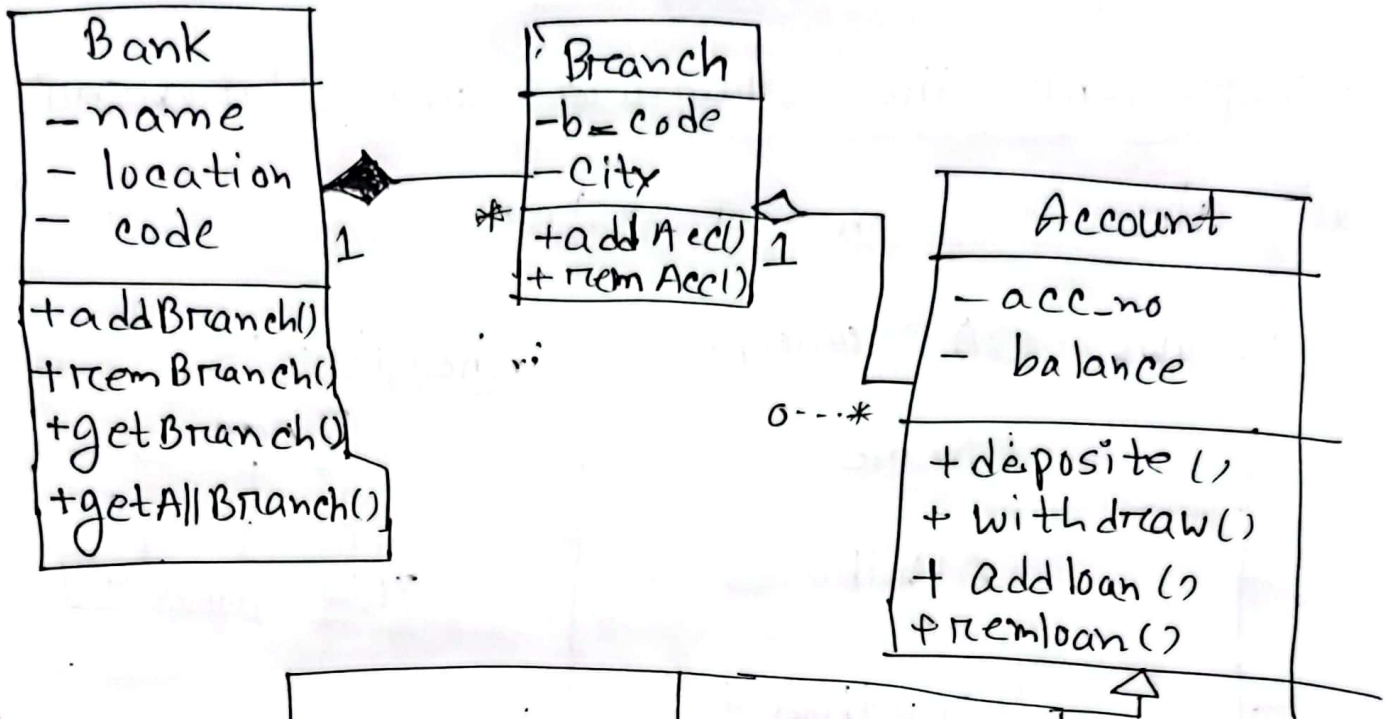 Bank
- name
- location
- code
+addBranch()
+remBranch()
+getBranch()
+getAllBranch()
1
*
Branch
-b_code
- City
+addAcc()
+ remAcc()
1
0---*
Account
- acc_no
- balance
+deposite()
+ withdraw()
+ addloan()
+remloan()